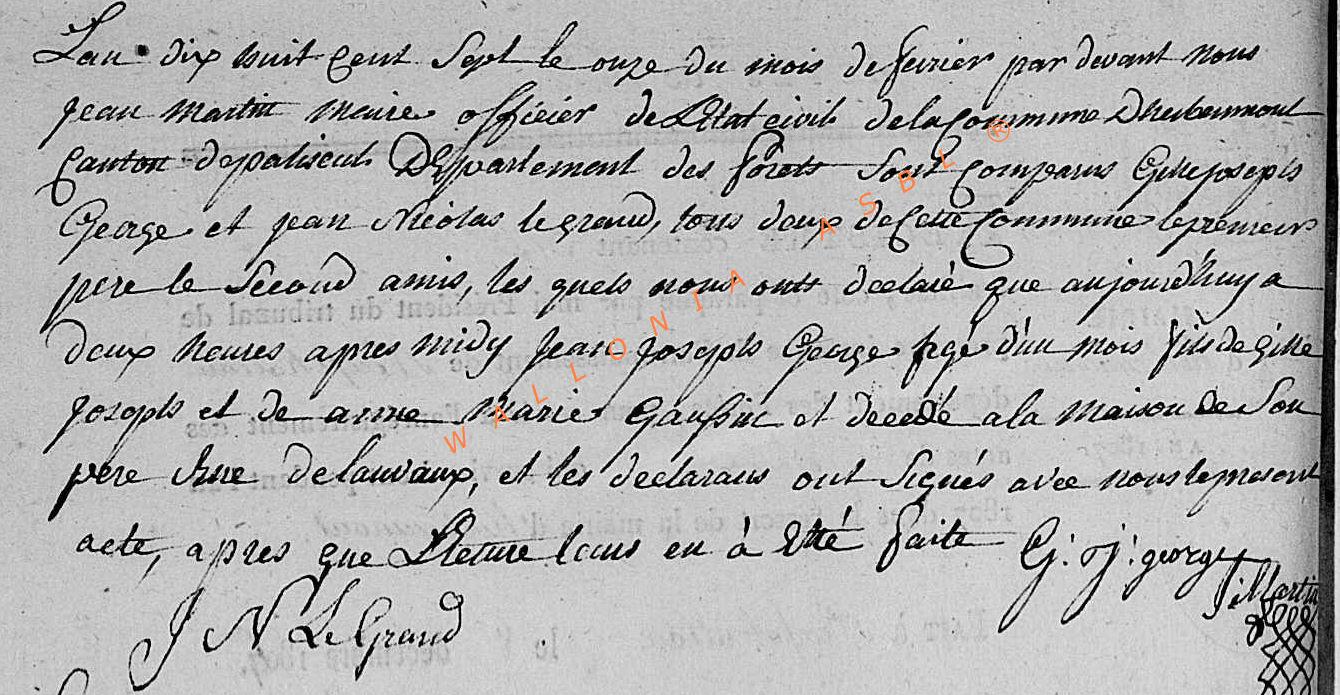 Lan dix huit Cent Sept le onze du mois de fevrier par devant nous
jean martin maire officier de Létat civil de la Commune Dherbeumont
Canton de paliseul Département des forets Sont Comparus Gille joseph
George et jean Nicolas le grand, tous deux de Cette Commune le premier
pere le Second amis, les quels nous ont declaré que aujourd'huy a
deux heures apres midy jean joseph George agé d'un mois fils de gille
joseph et de anne Marie et decedé a la maison de Son
pere Rue de lauvaux, et les declarans ont Signés avec nous le present
acte, apres que Lecture leur en à Etté faite G: J: george
J Martin
J N Le Grand
WALLONIA ASBL ®